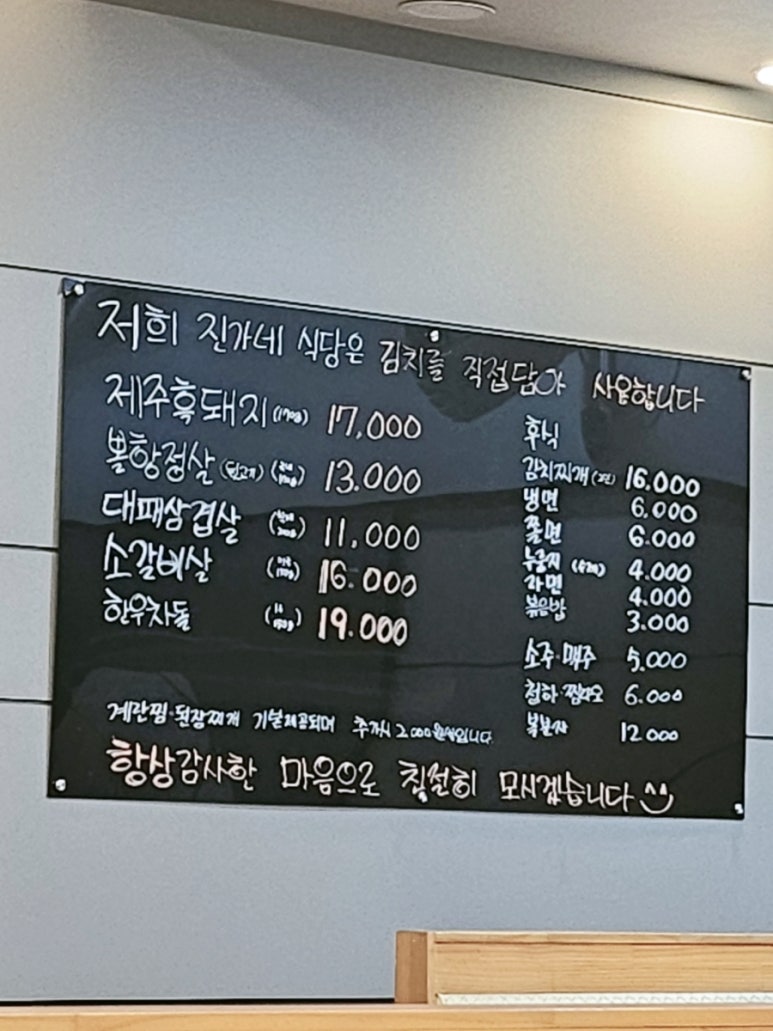 저희 진가네 식당은 김치를 직접담아 사용합니다
제주흑돼지 (170g) 17,000
볼항정살 (뒷고기) 13.000
대패삼겹살 11,000
소갈비살 16.000
한우차돌 19.000
후식
김치찌개 16.000
냉면 6.000
쫄면 6.000
누룽지 (수제) 4.000
라면 4.000
볶음밥 3.000
소주·맥주 5,000
청하· 6.000
복분자 12.000
계란찜·된장찌개 기본제공되며 추가시 2.000원씩입니다
항상감사한 마음으로 친절히 모시겠습니다